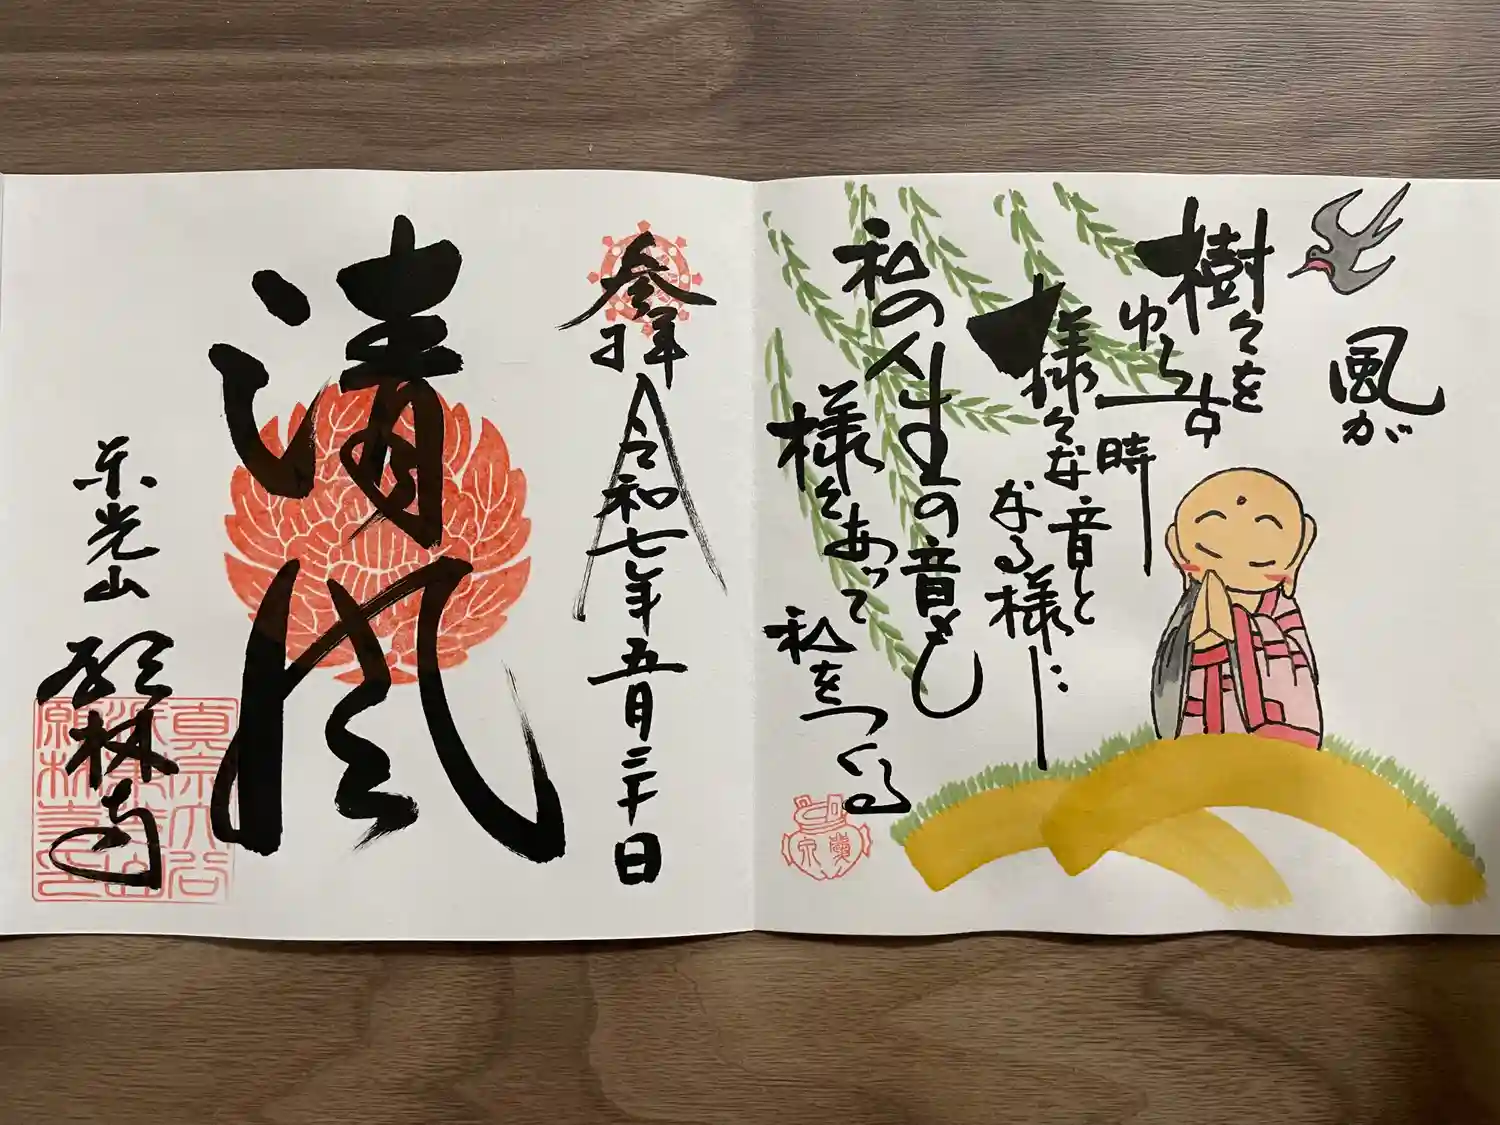 風が
樹々を
ゆらす
時
様々な音と
なる様に
私の人生の音も
様々あって
私をつくる
参拝 令和七年五月三十日
清風
東光山
願林寺
真宗大谷